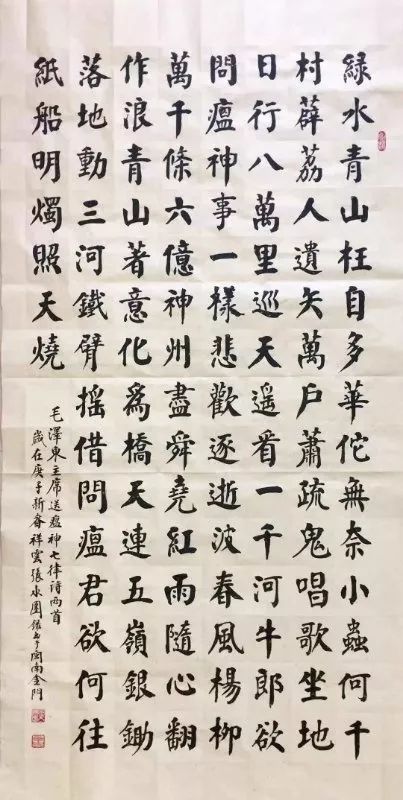 緑水青山枉自多華佗無奈小蟲何千
村薜荔人遺矢萬戶蕭疏鬼唱歌坐地
日行八萬里巡天遥看一千河牛郎欲
問瘟神事一樣悲歡逐逝波春風楊柳
萬千條六億神州盡舜堯紅雨隨心翻
作浪青山著意化爲橋天連五嶺銀鋤
落地動三河鐵臂摇借問瘟君欲何往
紙船明燭照天燒
毛澤東主席送瘟神七律詩两首
歲在庚子新春祥雲張水於閩南金門